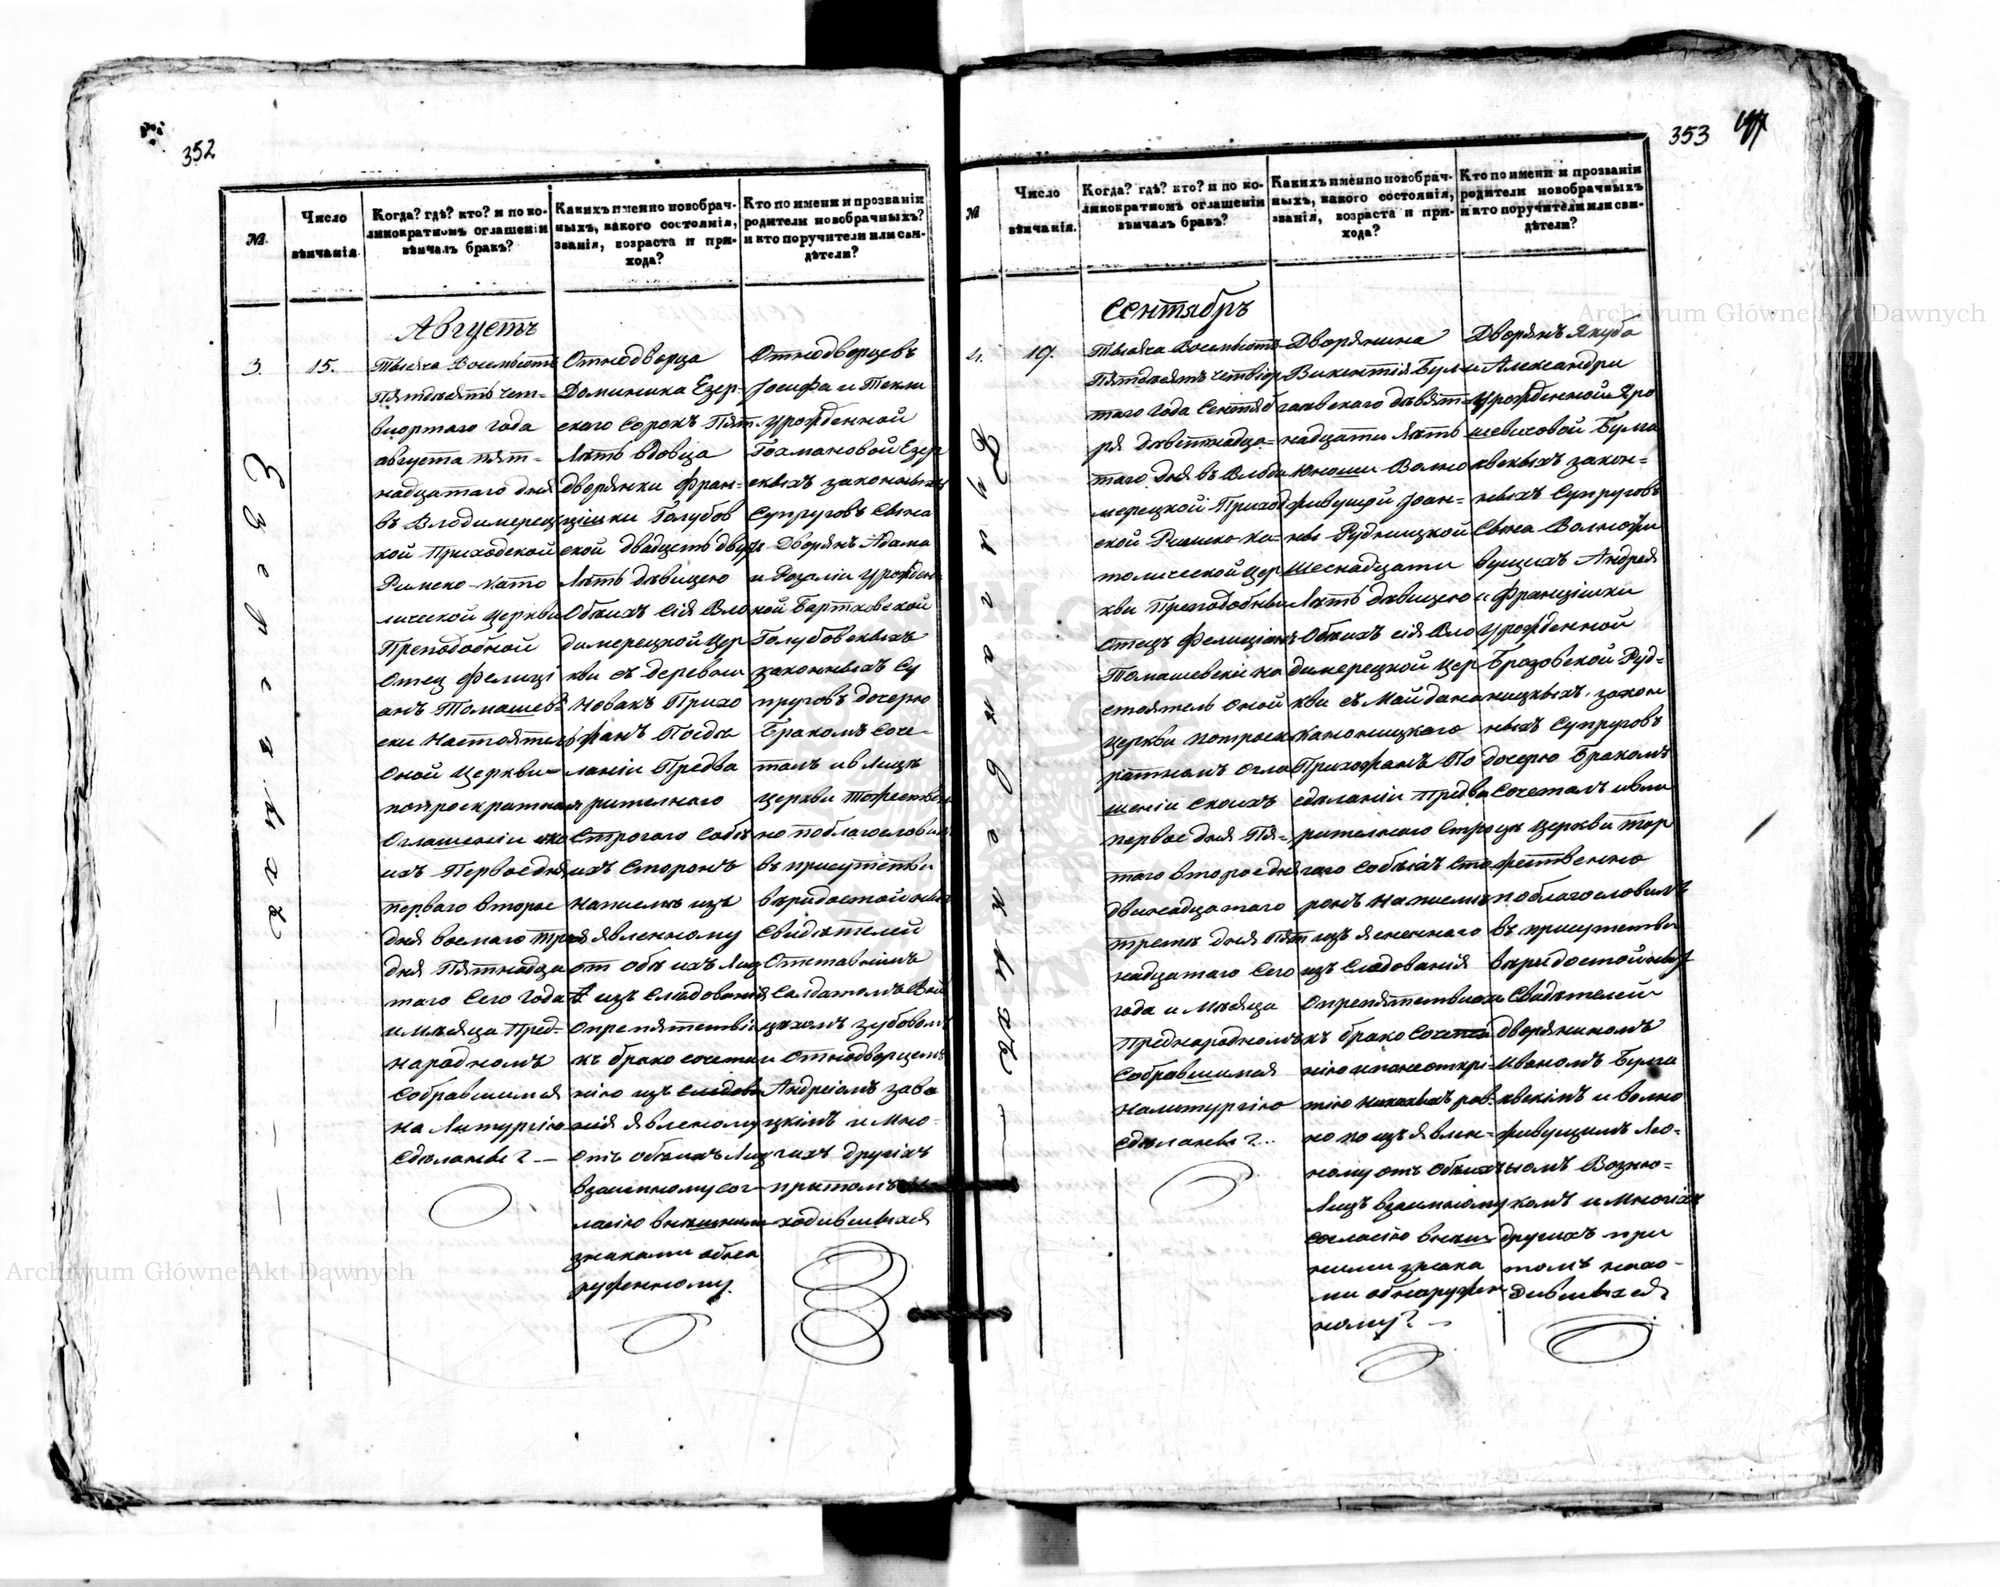 352
№.
Число
вѣнчанія.
Когда? гдѣ? кто? и по ко-
ликократномъ оглашеніи
вѣнчалъ бракъ?
Какихъ именно новобрач-
ныхъ, какого состоянія,
званія, возраста и при-
хода?
Кто по имени и прозванію
родители новобрачныхъ?
и кто поручители или сви-
дѣтели?
Августъ
3.
15.
Тысяча Восемьсотъ
Пятдесятъ чет-
вюртаго года
августа пят-
надцатаго дня
въ Владимерец
кой Приходской
Римско-Като
лической Церкви
Преподобной
Отец Фелиці
анъ Томашев
ски Настоятель
Оной Церкви
потроекратном
Оглашеніи
ихъ Первое дня
перваго второе
дня восмаго
дня Пятнадца
таго Сего года
и мѣсяца Пред-
народномъ
Собравшимся
на Литургію
Сдѣланы? —
Отнодворца
Доминика Езер-
скаго Сорокъ Пят
Лѣтъ вдовца
дворянки Фран-
цішки Голубов
ской двадцеть двух
Лѣтъ дѣвицею
Обѣихъ Сія Вло
димерецкой Цер
кви съ деревни
Новакъ Прихо
жанъ Посдѣ
ланіи Предва
рителнаго
Строгаго Собѣ
ихъ Сторонъ
написмѣ изъ
явленному
от обѣ ихъ Лиц
изъ Слѣдованія
Опрепятствіи
къ брако сочета
нію изъ
нія явленому
Отъ обѣихъ Лиц
взаимному сог-
ласію
знаками обна
руженному.
Отнодворцевъ
Іосифа и Текли
урожденной
Гохмановой Езер
скихъ законныхъ
Супруговъ Сына
Дворянъ Адама
и Розаліи Урожден
ной Бартковской
Голубовскихъ
законныхъ Су
пруговъ дочерю
Бракомъ Соче-
талъ ивЛицѣ
Церкви Торжествен
но поблагословил
въ присутстви
вѣридостойных
Свидѣтелей
Отставнымъ
Салдатомъ
Зубовом
и Отнодворцемъ
Андреіомъ Зава
цкімъ и Мно-
гихъ другихъ
притомъ
ходившихся
Езерскихъ
353
№
Число
вѣнчанія.
Когда? гдѣ? кто? и по ко-
ликократномъ оглашеніи
вѣнчалъ бракъ?
Какихъ именно новобрач-
ныхъ, какого состоянія,
званія, возраста и при-
хода?
Кто по имени и прозванію
родители новобрачныхъ
и кто поручители или сви-
дѣтели?
Сентябръ
4.
19.
Тысяча Восемьсотъ
Пятдесятъ четвіор
таго Года Сентяб
ря девятнадца-
таго дня въ Влоди
мерецкой Приход
ской Римско-Ка-
толической Цер
кви Преподобны
Отецъ Фелиціянъ
Томашевскі На
стоятель Оной
Церкви потроек
ратномъ Огла
шеніи Своихъ
первое дня Пя-
таго второе дня
двинадцатаго
третье дня Пят
надцатаго Сего
года и Мѣсяца
Преднародномъ
Собравшимся
на литургію
Сдѣланы?..
Дворянина
Викентія Булг
гаквскаго девят-
надцати Лѣтъ
Юноши Волно
живущой Іоан-
ны Рудницкой
Шеснадцати
Лѣтъ дѣвицею
Обѣихъ сія Вло
димерецкой Цер
кви съ Майдана
Каноницкаго
Прихожанъ По
сдѣланіи Предва
рителнаго Стро
гаго Собѣихъ Сто
ронъ написмѣ
изъ
изъ Слѣдованія
Опрепятствиахъ
къ брако Сочета
нію
тію
но по изъявлен-
ному отъ Обѣихъ
Лицъ взаимному
согласію
ними знака
ми обнаружен
ному? —
Дворянъ Якуба
и Александри
Урожденной Яро
шевиховой Булга
квскихъ закон-
ныхъ Супруговъ
Сына Волножи
вущихъ Андрея
и Францішки
Урожденной
Бразовской Руд-
ницкихъ закон
ныхъ Супруговъ
дочерю Бракомъ
Сочеталъ ивЛи
цѣ Церкви Тор
жественно
поблагословилъ
въ присутстви
вѣридостойных
Свидѣтелей
дворяниномъ
Иваномъ Булга
квскімъ и волно
живущимъ Лео-
номъ Возню-
комъ и Многихъ
другихъ при
томъ нахо-
дившихся
Archiwum Główne Akt Dawnych
Archiwum Główne Akt Dawnych